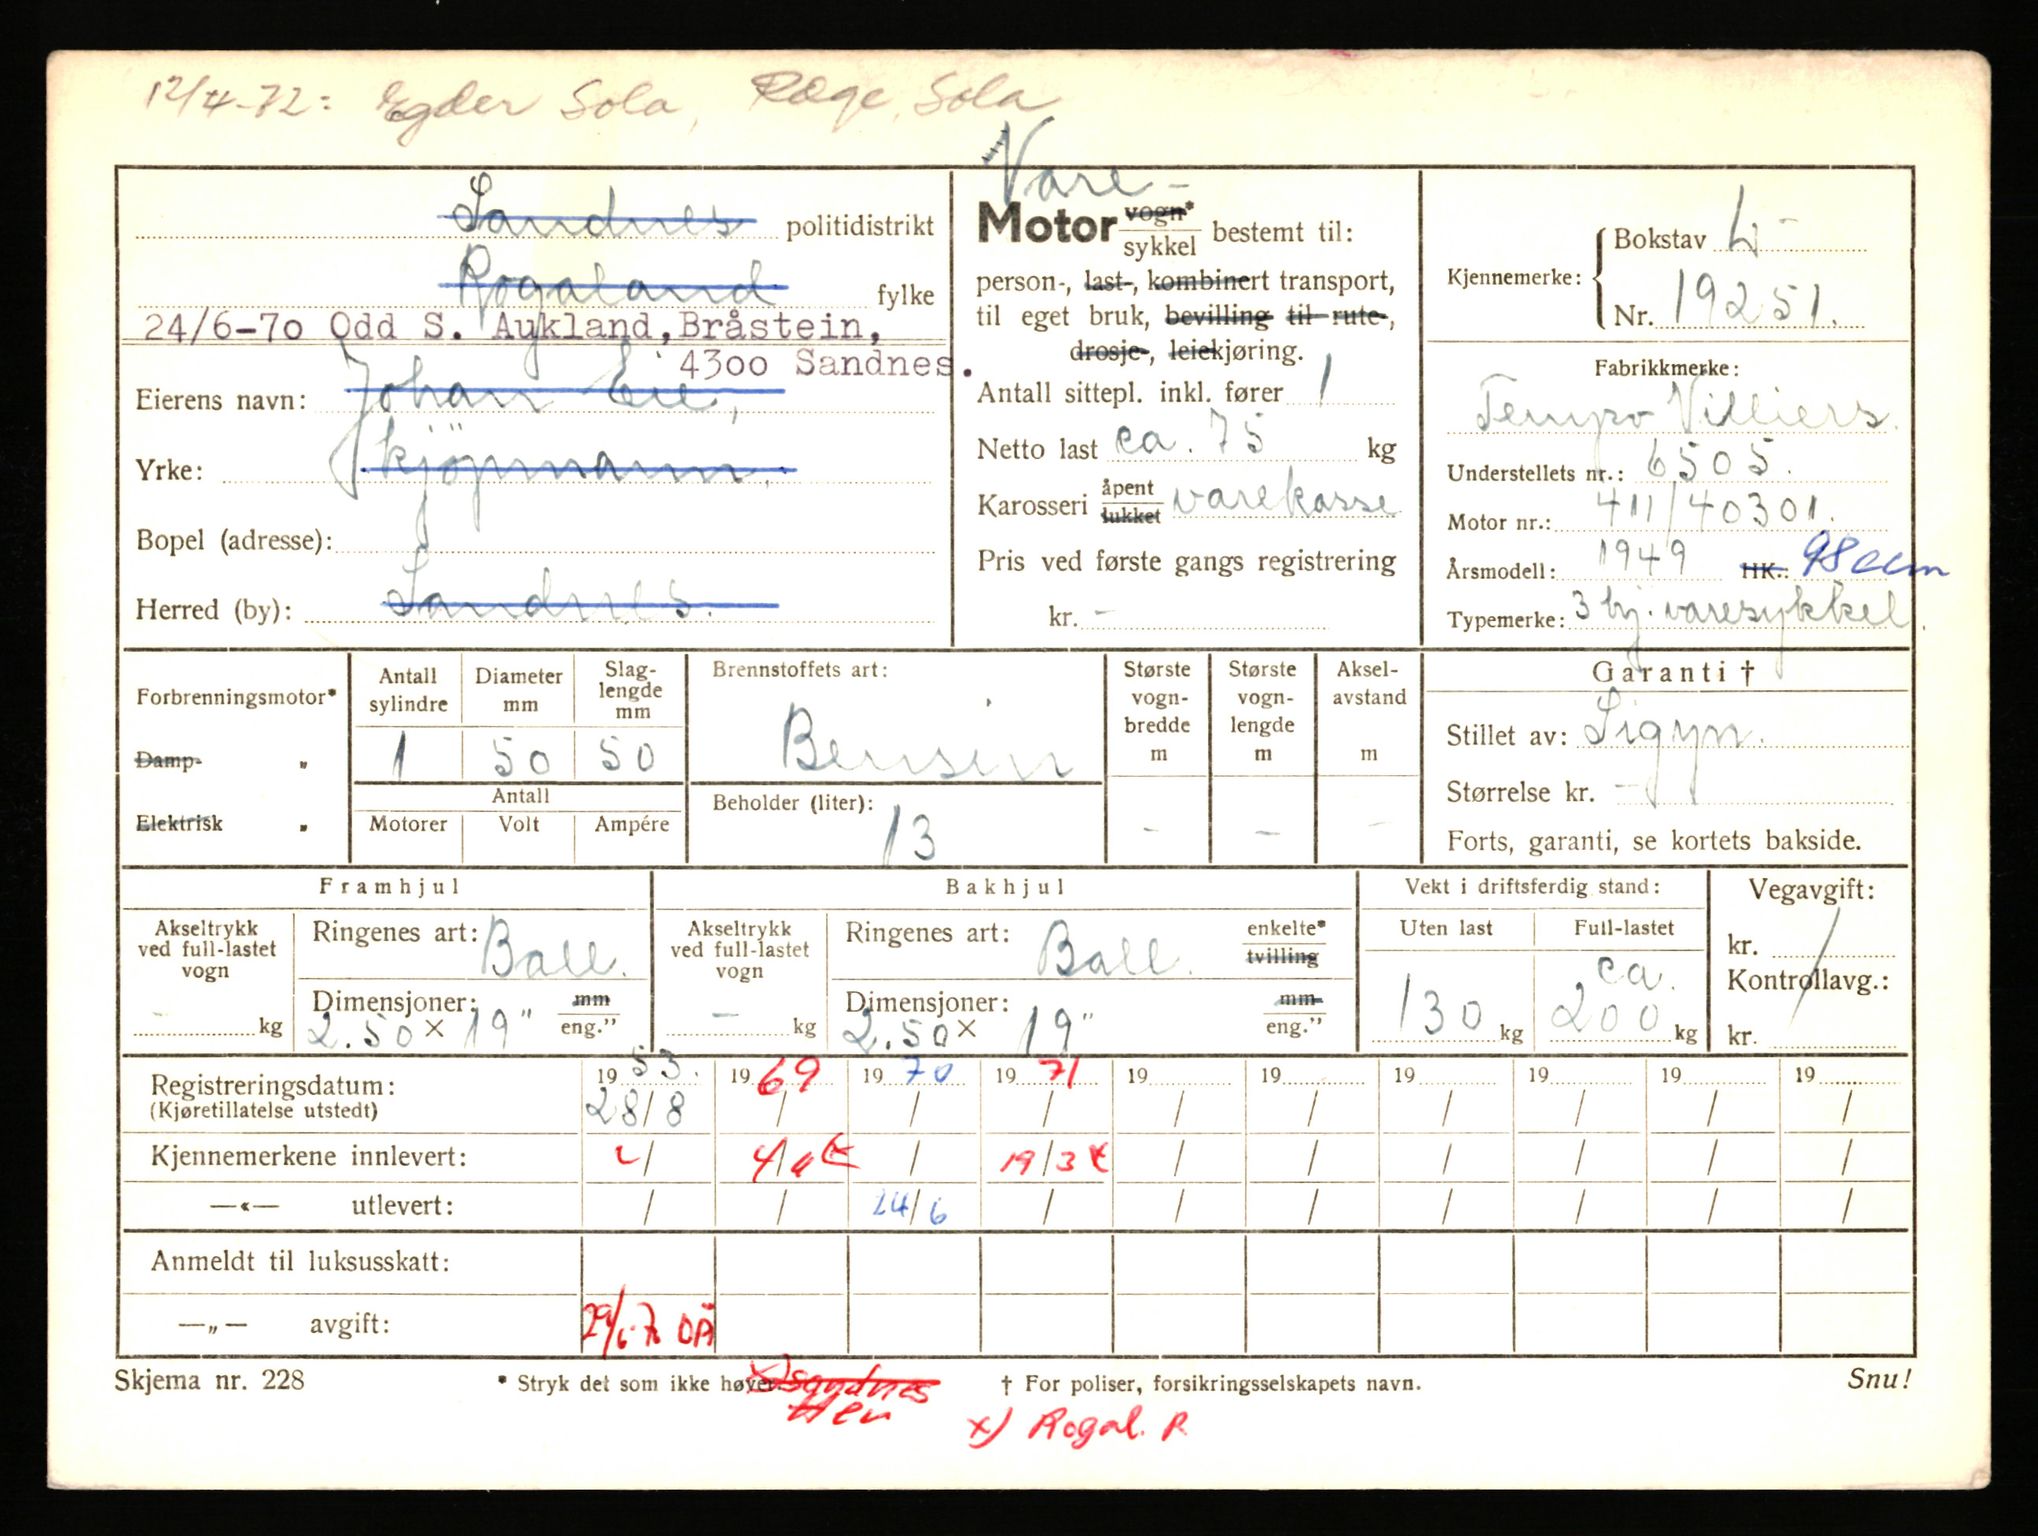 12/4-72: Egder Sola, Ræge, Sola
Sandnes politidistrikt
Rogaland fylke
24/6-70 Odd S. Aukland, Bråstein,
4300 Sandnes.
Eierens navn: Johan Eie,
Yrke: kjøpmann.
Bopel (adresse):
Herred (by): Sandnes.
Vare-
Motor vogn* sykkel bestemt til:
person-, last-, kombinert transport,
til eget bruk, bevilling til rute-,
drosje-, leiekjøring.
Antall sittepl. inkl. fører 1
Netto last ca. 75 kg
Karosseri åpent lukket varekasse
Pris ved første gangs registrering
kr. -
Kjennemerke: Bokstav L-
Nr. 19251.
Fabrikkmerke:
Tempo Villiers.
Understellets nr.: 6505.
Motor nr.: 411/40301.
Årsmodell: 1949 HK.: 98 ccm
Typemerke: 3 hj. varesykkel.
Forbrenningsmotor*
Damp- "
Elektrisk "
Antall sylindre
Diameter mm
Slag-lengde mm
1 50 50
Antall
Motorer Volt Ampére
Brennstoffets art:
Bensin
Beholder (liter):
13
Største vogn-bredde m
-
Største vogn-lengde m
-
Aksel-avstand m
-
Garanti †
Stillet av: Sigyn.
Størrelse kr. -
Forts, garanti, se kortets bakside.
Framhjul
Akseltrykk ved full-lastet vogn
- kg
Ringenes art: Ball.
Dimensjoner: mm
2.50 x 19" eng."
Bakhjul
Akseltrykk ved full-lastet vogn
- kg
Ringenes art: Ball. enkelte* tvilling
Dimensjoner: mm
2.50 x 19" eng."
Vekt i driftsferdig stand:
Uten last Full-lastet
130 kg ca. 200 kg
Vegavgift:
kr. /
Kontrollavg.:
kr.
Registreringsdatum: 1953. 1969 1970 1971 19 19 19 19 19 19
(Kjøretillatelse utstedt) 28/8 / / / / / / / / /
Kjennemerkene innlevert: / 4/11 / 19/3 / / / / / /
—«— utlevert: / / 24/6 / / / / / / /
Anmeldt til luksusskatt:
—„— avgift: 29/6-70 OÅ
Skjema nr. 228 * Stryk det som ikke høver. † For poliser, forsikringsselskapets navn. Snu!
x) Sandnes
x) Rogal. R